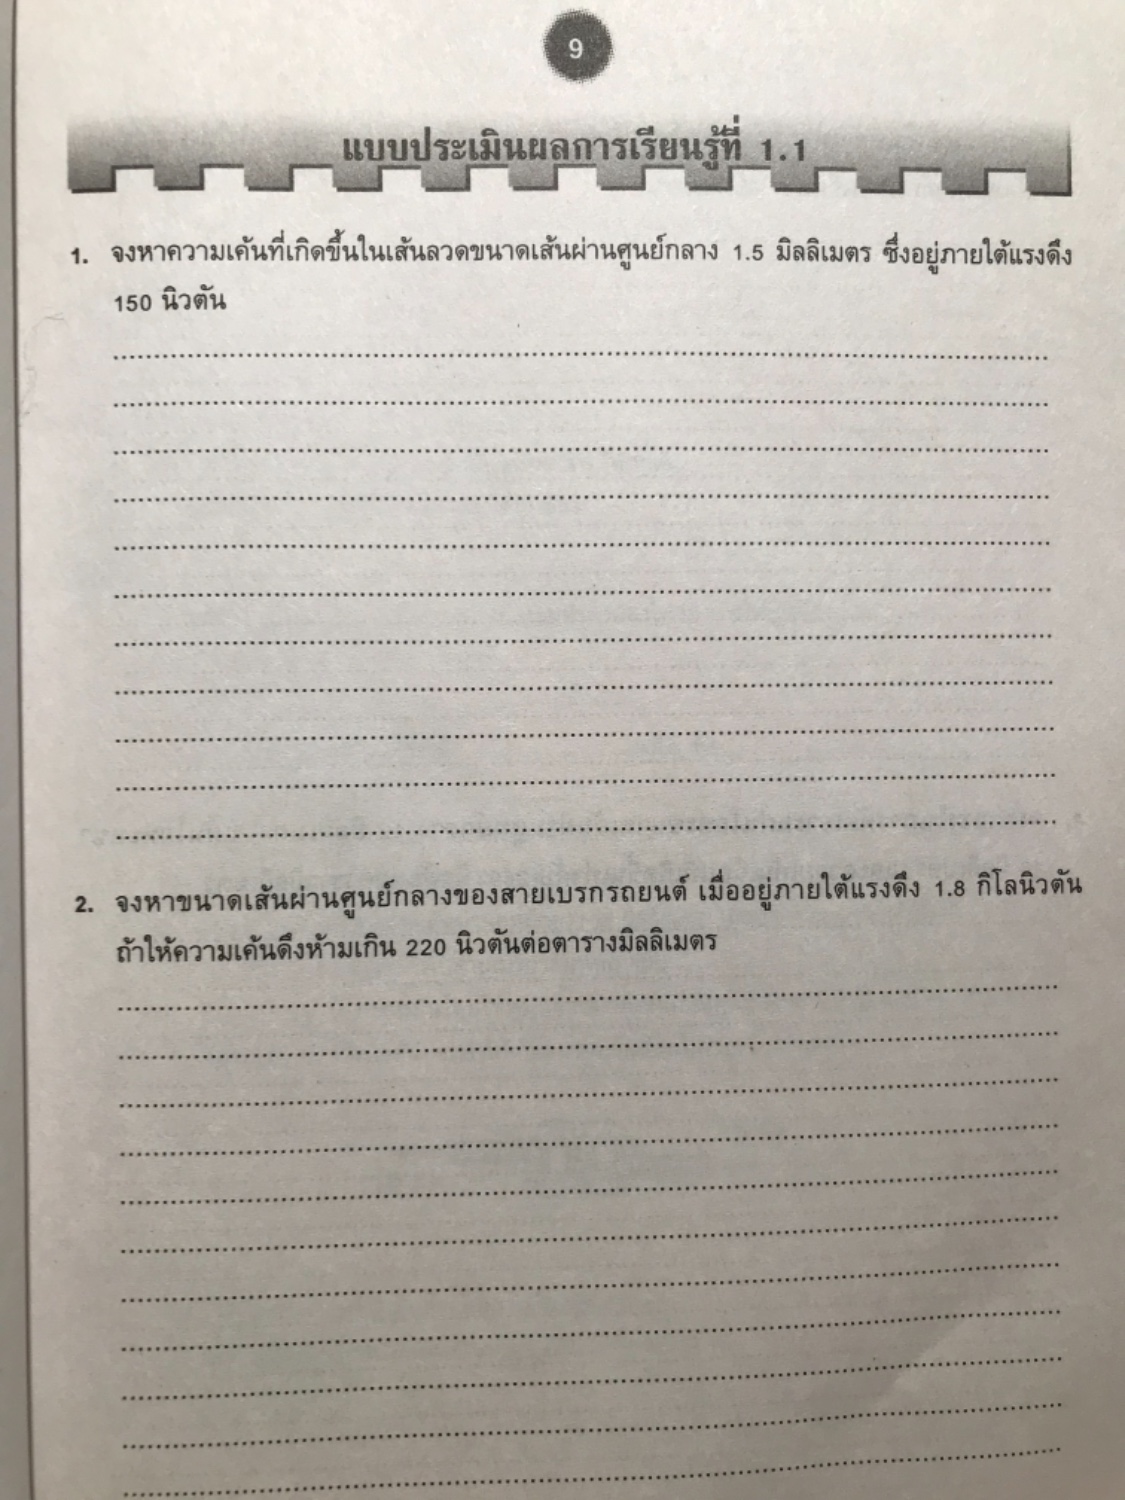 9
แบบประเมินผลการเรียนรู้ที่ 1.1
1. จงหาความเค้นที่เกิดขึ้นในเส้นลวดขนาดเส้นผ่านศูนย์กลาง 1.5 มิลลิเมตร ซึ่งอยู่ภายใต้แรงดึง
150 นิวตัน
2. จงหาขนาดเส้นผ่านศูนย์กลางของสายเบรกรถยนต์ เมื่ออยู่ภายใต้แรงดึง 1.8 กิโลนิวตัน
ถ้าให้ความเค้นดึงห้ามเกิน 220 นิวตันต่อตารางมิลลิเมตร